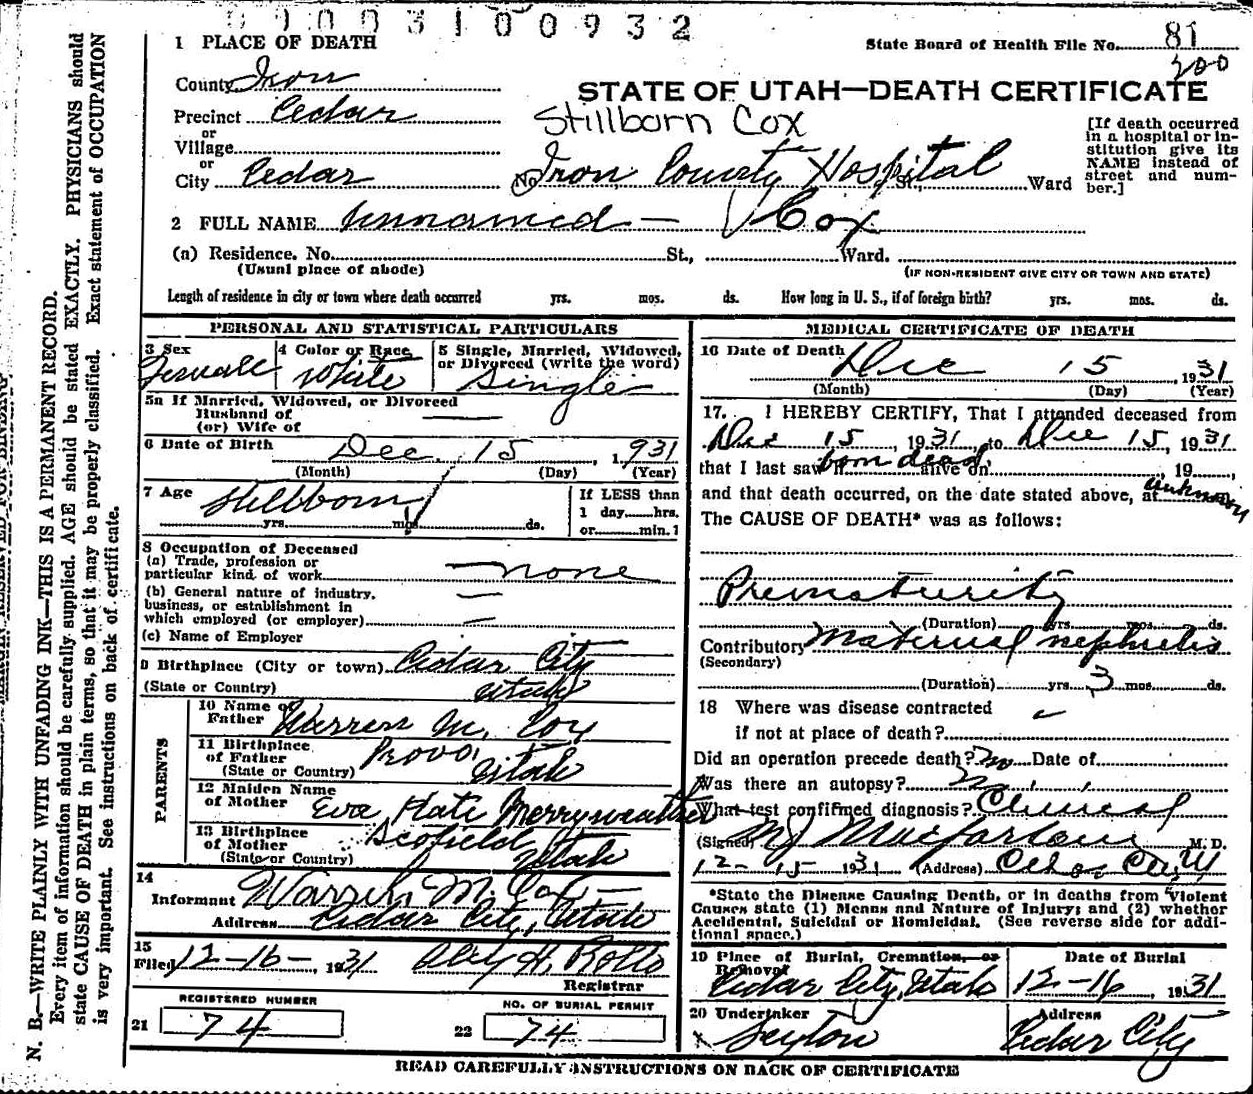 00003100932
1 PLACE OF DEATH
State Board of Health File No. 81
200
County Iron
STATE OF UTAH—DEATH CERTIFICATE
Precinct Cedar
Stillborn Cox
or
Village
or
City Cedar
No. Iron County Hospital St., Ward
[If death occurred
in a hospital or in-
stitution give its
NAME instead of
street and num-
ber.]
2 FULL NAME Unnamed — Cox
(a) Residence. No. St., Ward.
(Usual place of abode)
(IF NON-RESIDENT GIVE CITY OR TOWN AND STATE)
Length of residence in city or town where death occurred yrs. mos. ds. How long in U. S., if of foreign birth? yrs. mos. ds.
PERSONAL AND STATISTICAL PARTICULARS
3 Sex
Female
4 Color or Race
White
5 Single, Married, Widowed,
or Divorced (write the word)
Single
5a If Married, Widowed, or Divorced
Husband of
(or) Wife of —
6 Date of Birth Dec. 15, 1931
(Month) (Day) (Year)
7 Age Stillborn
yrs. mos. ds.
If LESS than
1 day hrs.
or min.
8 Occupation of Deceased
(a) Trade, profession or
particular kind of work none
(b) General nature of industry,
business, or establishment in
which employed (or employer) —
(c) Name of Employer
9 Birthplace (City or town) Cedar City
(State or Country) Utah
PARENTS
10 Name of
Father Warren M. Cox
11 Birthplace
of Father Provo, Utah
(State or Country)
12 Maiden Name
of Mother Eva Kate Merryweather
13 Birthplace
of Mother Scofield Utah
(State or Country)
14
Informant Warren M. Cox —
Address Cedar City, Utah
15
Filed 12-16-, 1931
H. Rollo
Registrar
REGISTERED NUMBER
21 74
NO. OF BURIAL PERMIT
22 74
MEDICAL CERTIFICATE OF DEATH
16 Date of Death Dec 15, 1931
(Month) (Day) (Year)
17. I HEREBY CERTIFY, That I attended deceased from
Dec 15, 1931 to Dec 15, 1931
that I last saw h born dead alive on, 19
and that death occurred, on the date stated above, at unknown
The CAUSE OF DEATH* was as follows:
Prematurity
(Duration) yrs. mos. ds.
Contributory Maternal nephritis
(Secondary)
(Duration) yrs. 3 mos. ds.
18 Where was disease contracted
if not at place of death?
Did an operation precede death? no Date of
Was there an autopsy? no
What test confirmed diagnosis? Clinical
(Signed) M J Macfarlane M. D.
12-15 1931 (Address) Cedar City U
*State the Disease Causing Death, or in deaths from Violent
Causes state (1) Means and Nature of Injury; and (2) whether
Accidental, Suicidal or Homicidal. (See reverse side for addi-
tional space.)
19 Place of Burial, Cremation, or
Removal
Cedar City, Utah
Date of Burial
12-16, 1931
20 Undertaker
Address
Cedar City
READ CAREFULLY INSTRUCTIONS ON BACK OF CERTIFICATE
N. B.—WRITE PLAINLY WITH UNFADING INK—THIS IS A PERMANENT RECORD.
Every item of information should be carefully supplied. AGE should be stated EXACTLY. PHYSICIANS should
state CAUSE OF DEATH in plain terms, so that it may be properly classified. Exact statement of OCCUPATION
is very important. See instructions on back of certificate.
MARGIN RESERVED FOR BINDING